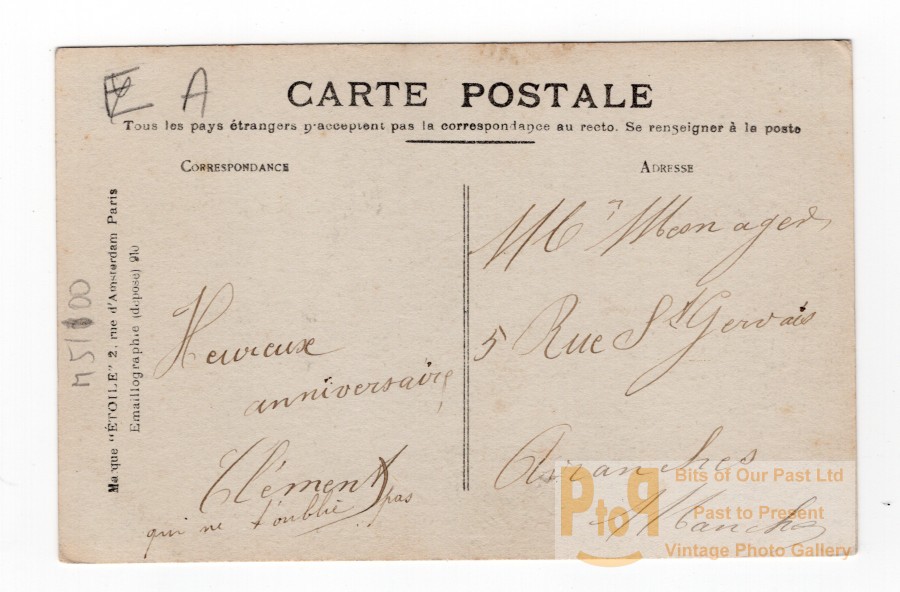 A
CARTE POSTALE
Tous les pays étrangers n'acceptent pas la correspondance au recto. Se renseigner à la poste
CORRESPONDANCE
ADRESSE
Marque "ÉTOILE" 2, rue d'Amsterdam Paris
Emaillographie (déposé) 910
M51 00
Heureux
anniversaire
Clément
qui ne t'oublie pas
Menager
5 Rue St Gervais
Avranches
Manche
PtoP
Bits of Our Past Ltd
Past to Present
Vintage Photo Gallery